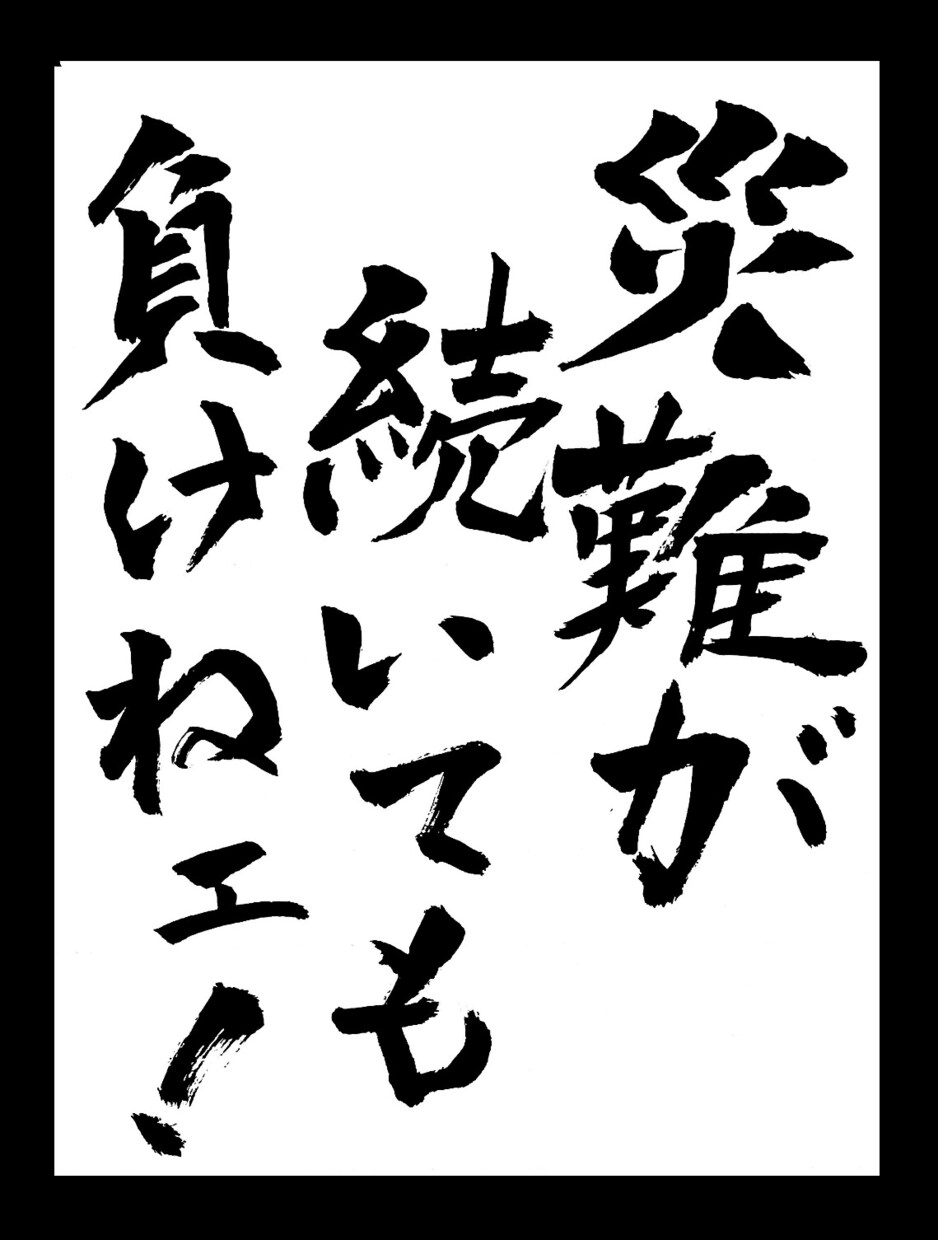 災難が
続いても
負けねエ!